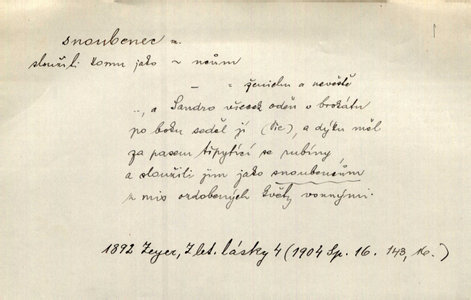 snoubenec m.
sloužili komu jako ~ ncům
— = ženichu a nevěstě
.., a Sandro všecek oděn v brokátu
po boku seděl jí (Bic), a dýku měl
za pasem třpytící se rubíny,
a sloužili jim jako snoubencům
z mis ozdobených květy vonnými.
1892 Zeyer, Z let. lásky 4 (1904 Sp. 16. 143, 16.)